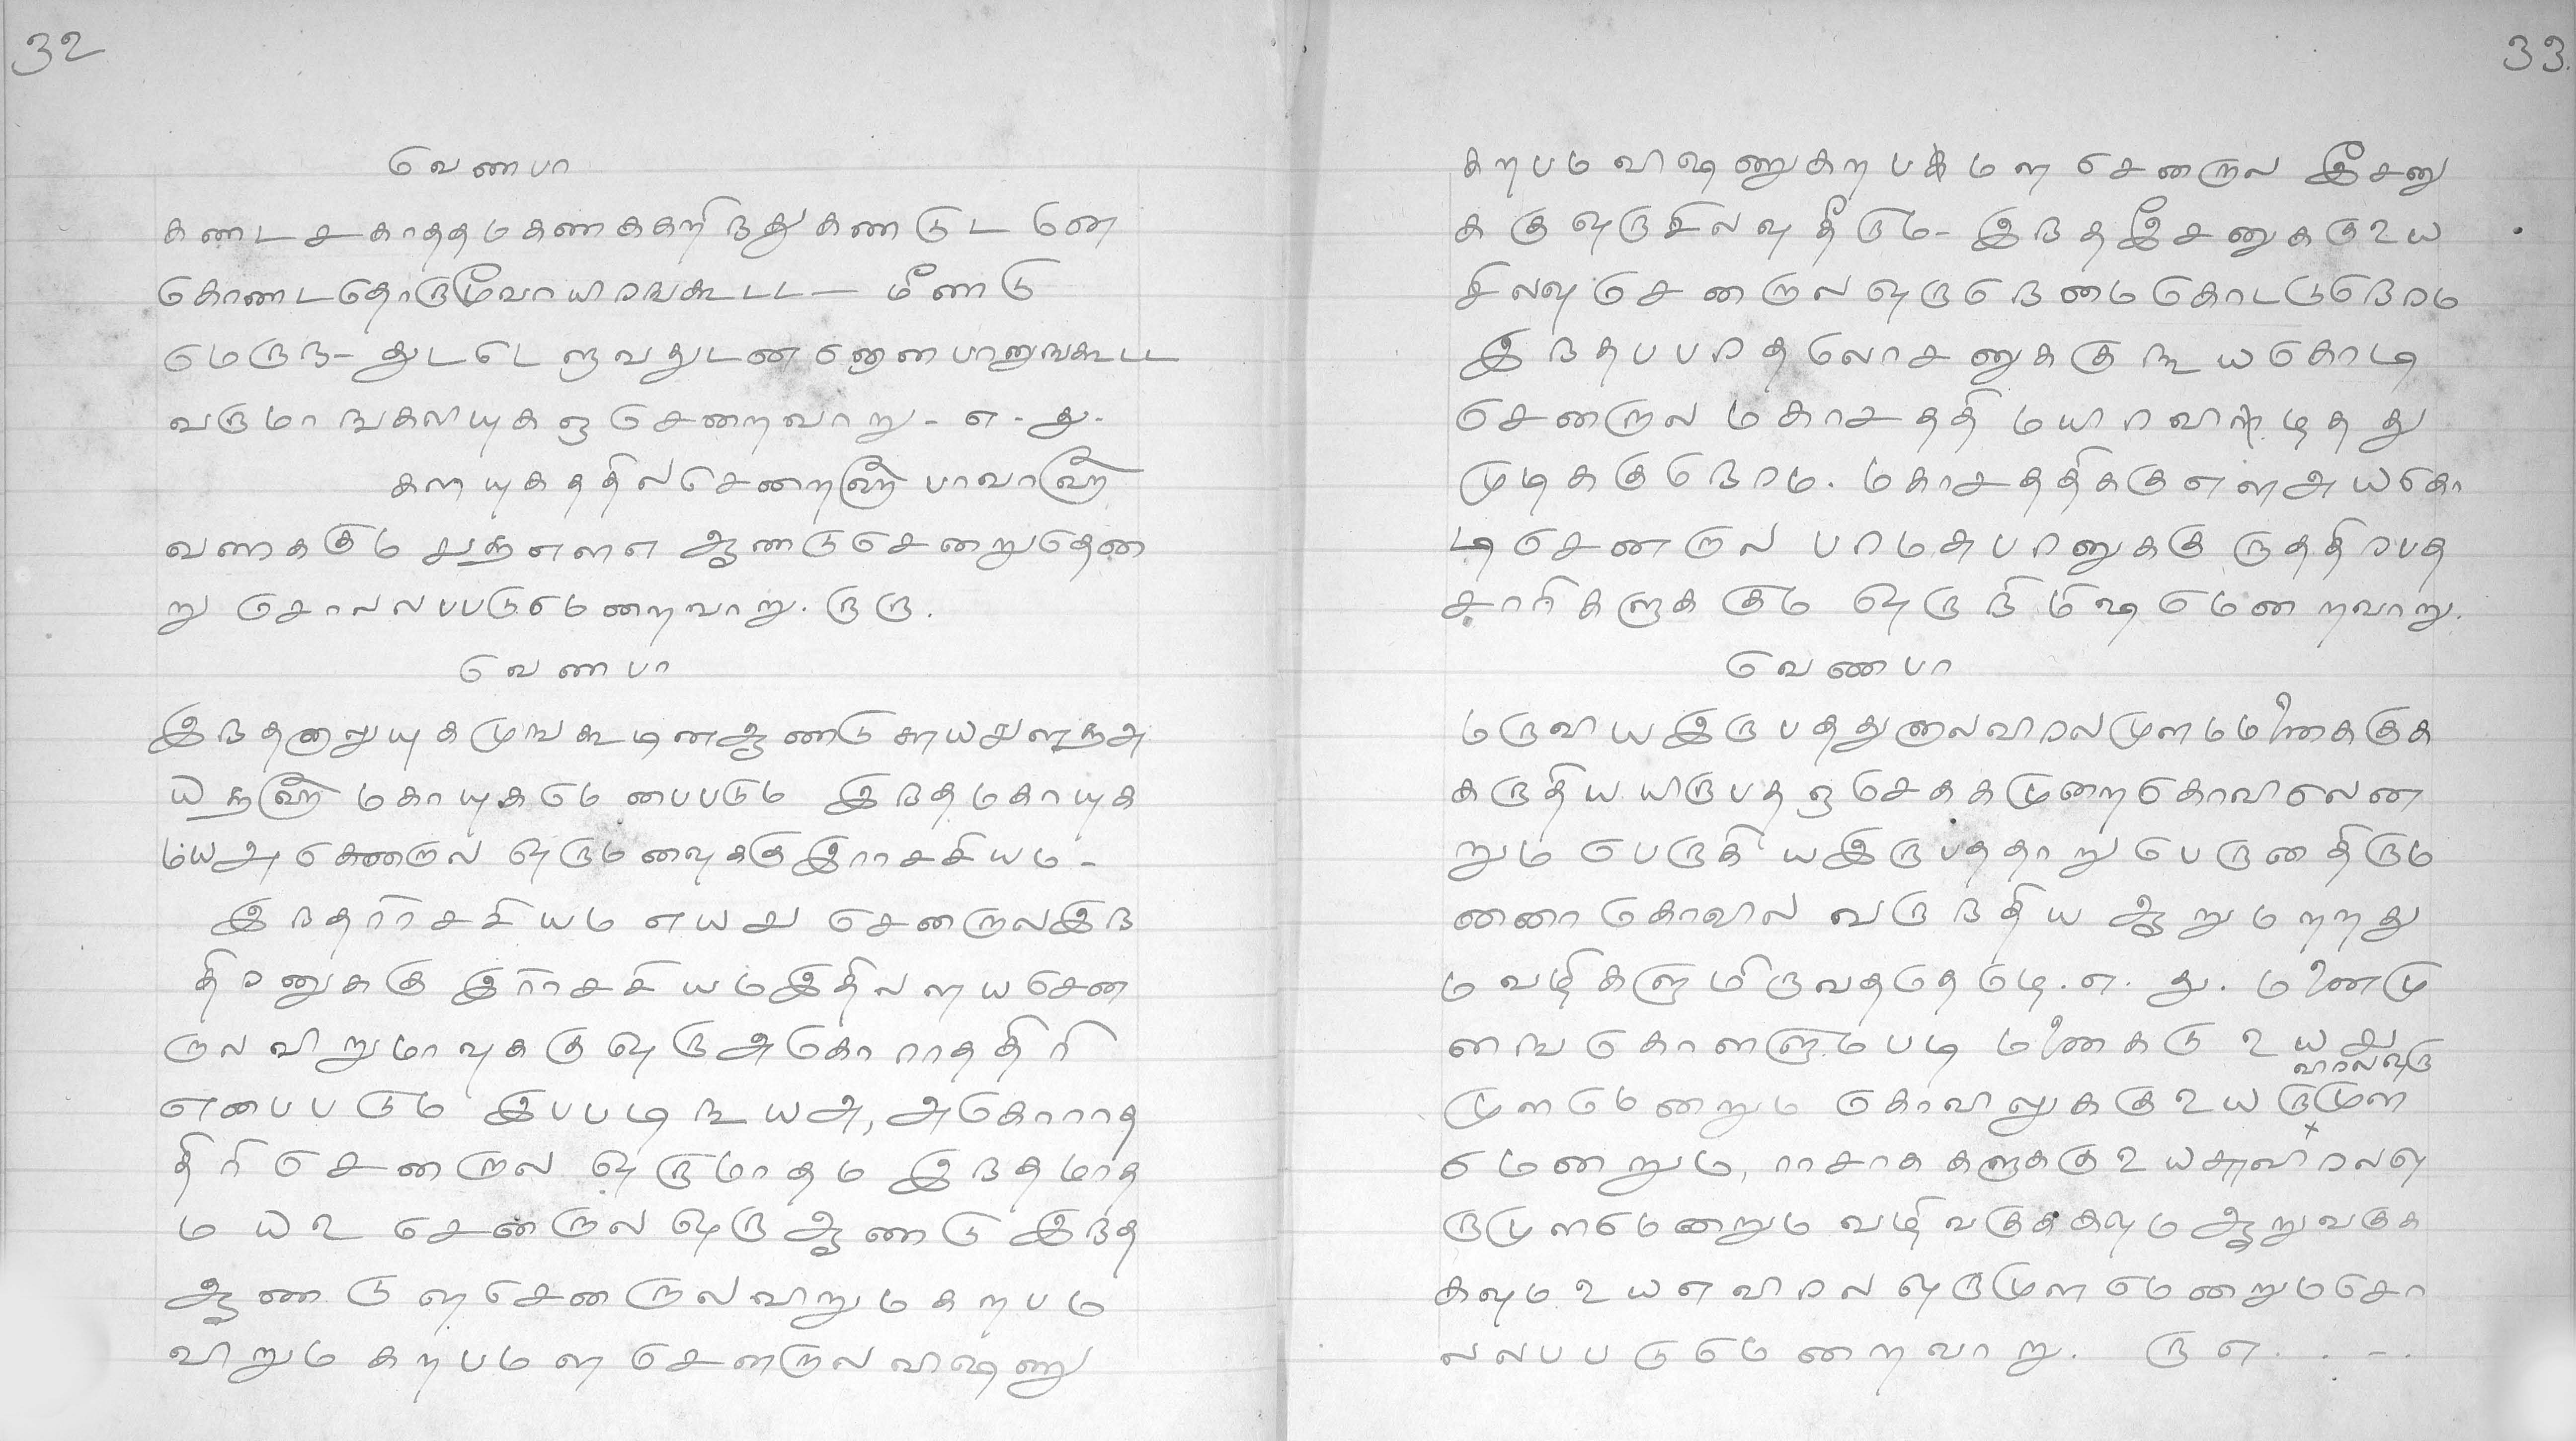 32
வெணபா
கணடசகாததமகணககறிநதுகணடுடனே
கொணடதொருமூவாயிரஙகூடட — மீணடு
மெருந- துடடெழுவதுடன னெணபானுஙகூடட
வருமாஙகலியுகஞசெனறவாறு - எ - து.
கலியுகததில செனற ௵ பாவா ௵
வணககும ௪௲௱எளஎ ஆணடுசெனறுதென
று சொலலபபடுமெனறவாறு. ௫௫.
வெணபா
இநதனாலுயுகமுஙகூடினஆணடு ௪௰௩ளஅ
௰௲௵ மகாயுகமெனபபடும இநதமகாயுக
ம௰அ சென்றால ஒருமனுவுககுஇராசசியம -
இநதராசசியம எ௰௪ செனறாலஇந
திரனுககு இராசசியமஇதில ள௰செனறா
றால விறுமாவுககு ஒருஅகொராததிரி
எனபபடும இபபடி ௩௰அ, அகொராத
திரி செனறால ஒருமாதம இநதமாத
ம ௰உ செனறால ஒருஆணடு இநத
ஆணடு ளசெனறால விறுமகறபம
விறும கறபம ள சென்றால விஷணு
33.
கறபம விஷணுகறபமள செனறால இசனு
ககு ஒருசிலவுதீரும - இநதஇசனுககுஉ௰
சிலவுசெனறால ஒருநெமைகொடடுநெரம
இநதபபரதலொசனுககு ௩௰கொடி
செனறால மகாசததி மயிரவிழிதது
முடிககுநெரம. மகாசததிககு எளஅ௰கொ
டிசெனறால பரமசுபரனுககு ருததிரபத
சாரிகளுககும ஒரு நிமிஷமெனறவாறு.
வெணபா
மருவியஇருபததுனாலவிரலமுளமமணைககுக
கருதியயிருபதஞசெககமுறைகொவிலென
றும பெருகியஇருபததாறுபெருனதிரும
ணைாகொவில வருநதிய ஆறுமறறது
மவழிகளுமிருவதமதெமடி. எ. து. மணைமு
னஙகொளளுமபடி மணைககு உ௰௪
விரலஒரு
முளமெனறும கொவிலுககு உ௰௫முள
மெனறும, ராசாககளுககு உ௰௬விரலஒ
ருமுளமெனறும வழிவகுககவும ஆறுவகுக
கவும உ௰எவிரல ஒருமுளமெனறுமசொ
லலபபடுமெனறவாறு. ௫எ. . - .